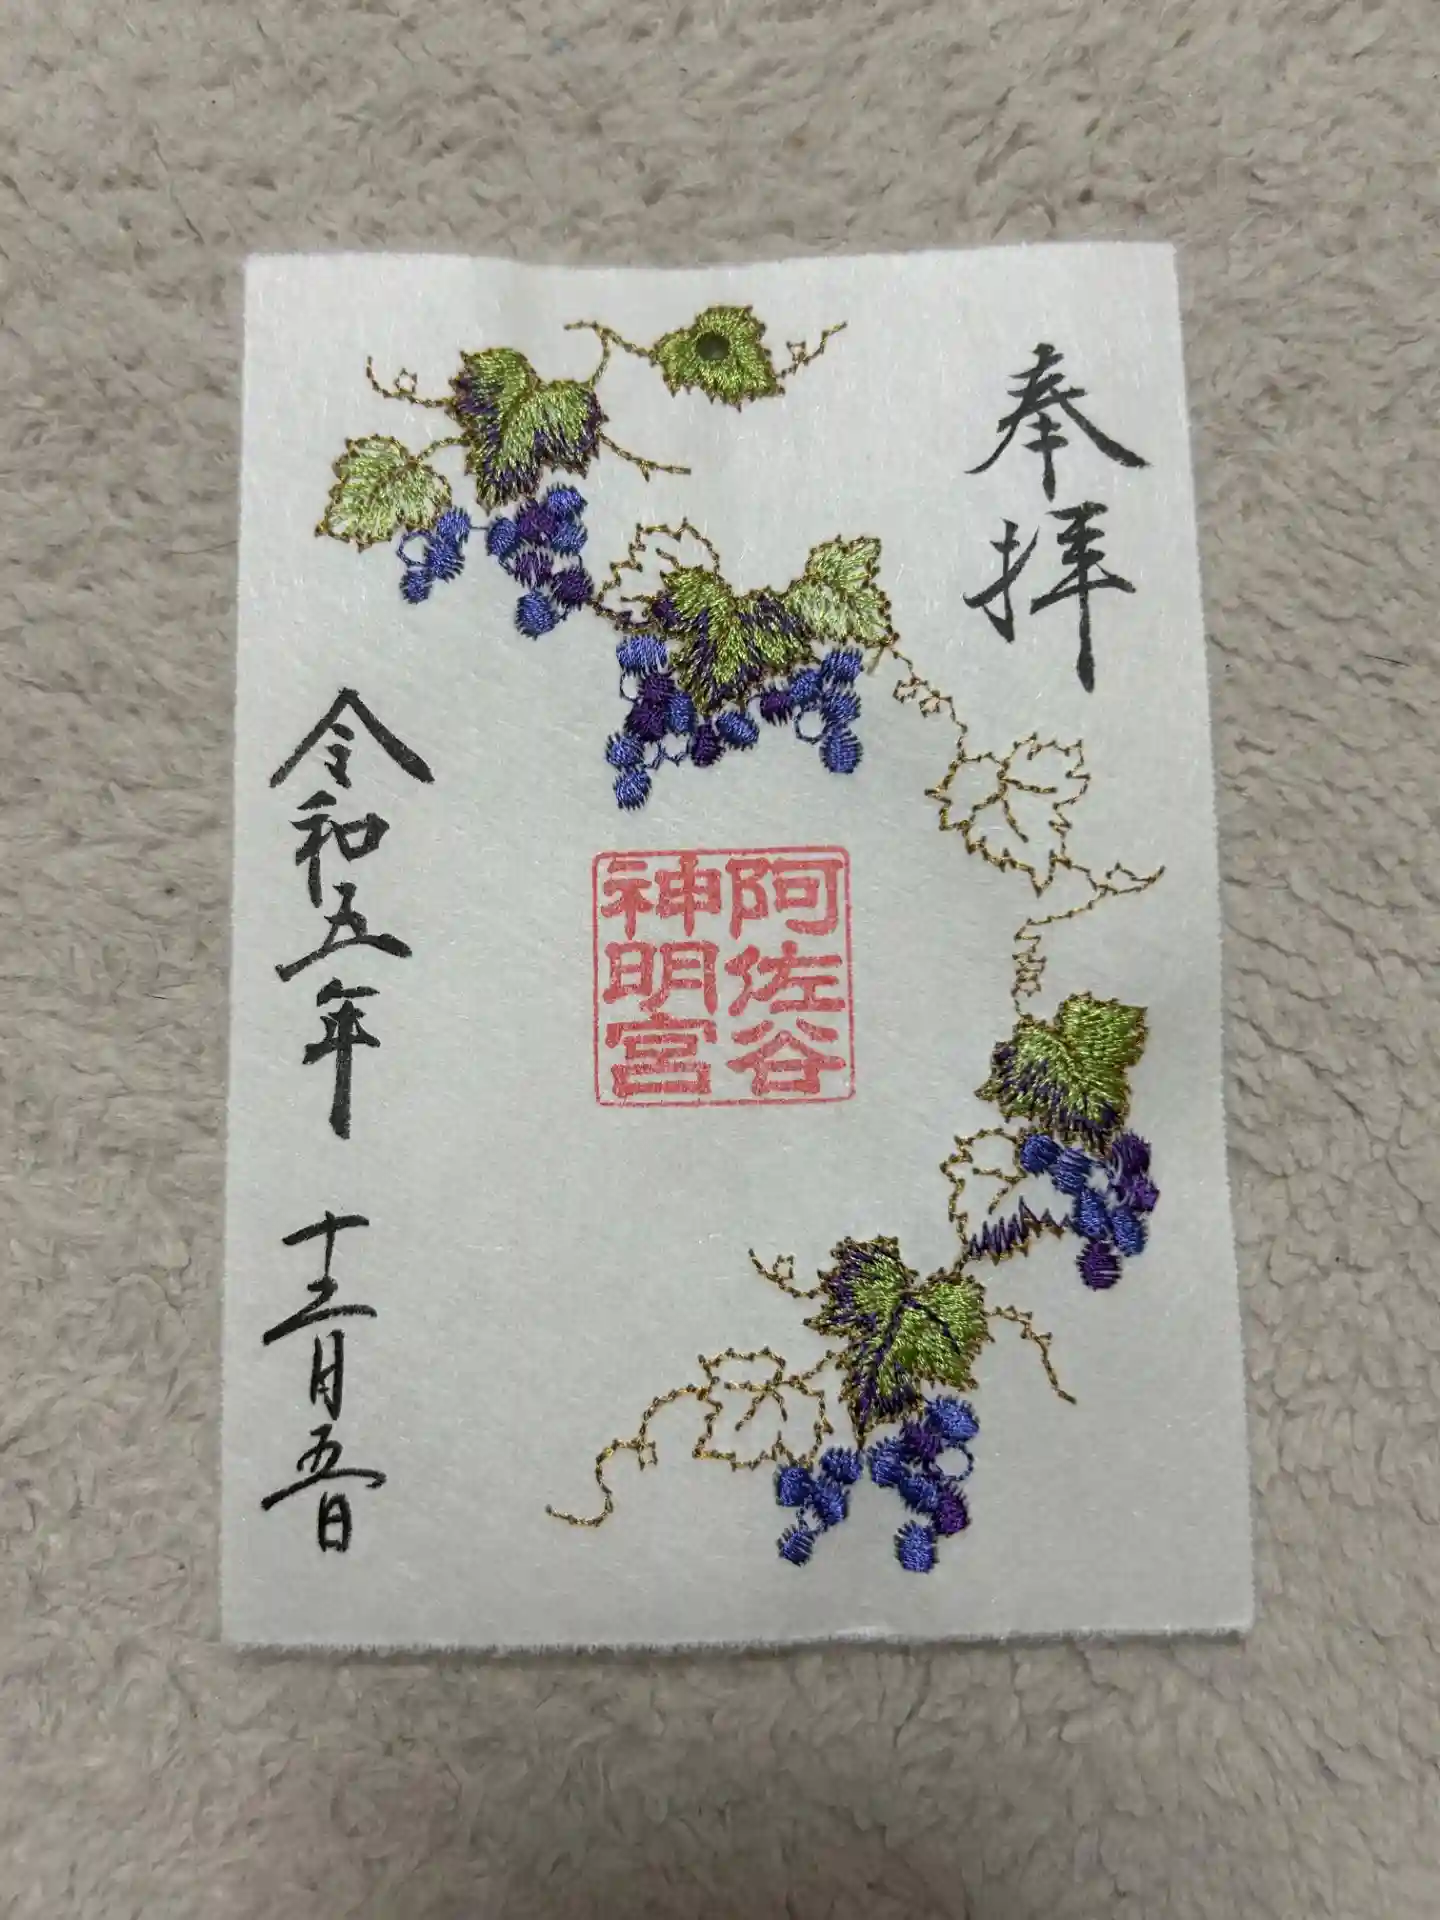 奉拝
阿佐谷
神明宮
令和五年 十二月五日